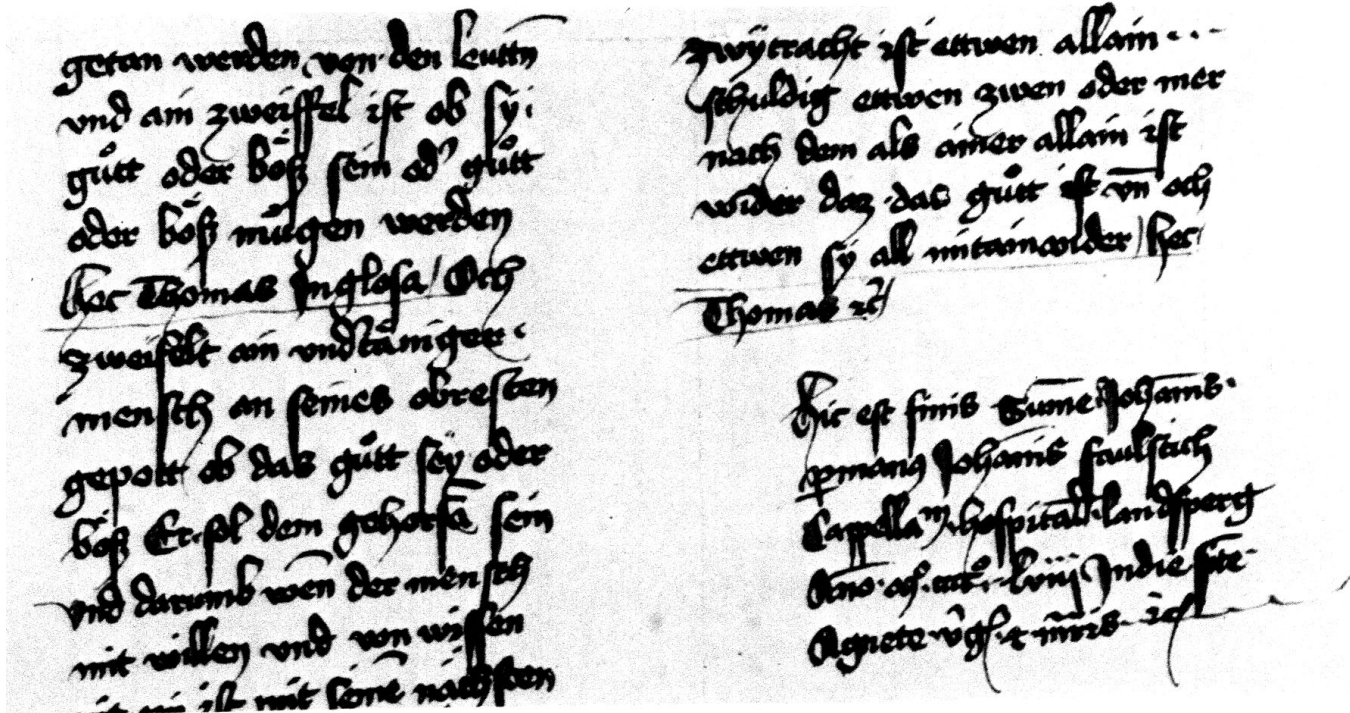 getan werden von den leuttn̄
vnd ain zweiffel ist ob sy·
gůtt oder böß sein od' gůtt
oder böß mügen werden
hec Thomas Jnglosa / Och
zweifelt ain vndtäniger·
mensch an seines obresten
gepott ob das gůtt sey oder
böß Er sol dem gehorsā sein
vnd darumb wen̄ der mensch
mit willen vnd von wissen
ist mit seinē nächsten
zwytracht ist ettwen allain · · ·
schuldig ettwen zwen oder mer
nach dem als ainer allain ist
wider daz · das gůtt ist vn̄ och
ettwen sy all mitainander / hec
Thomas ꝛc̄ /
Hic est finis Sum̄e Johān̄is·
ꝑ manꝰ Johān̄is faulstich
Cappellaⁿⁱ · hospitał · landsperg
An̄o · lviij Jndie sc̄te·
Agnete v̄gīs · ⁊ m̄r̄is · ꝛc̄